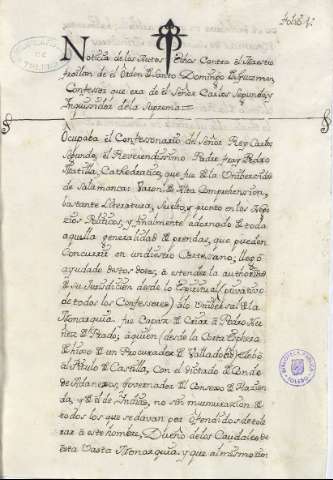 Folio 1.
Noticia de los Autos echos Contra el Maestro
froilan de el Orden de Santo Domingo de Guzman,
Confessor que era de el Señor Carlos Segundo, y
Inquisidor de la Suprema.
Ocupaba el Confessonario del Señor Rey Carlos
Segundo, el Reverendissimo Padre fray Pedro
Matilla, Cathedratico, que fue de la Universidad
de Salamanca: Varon de Alta Comprehension,
bastante Literatura, Suelto, y pronto en los Nego
zios Politicos, y finalmente adornado de toda
aquella generalidad de prendas, que pueden
Concurrir en un diestro Cortesano; llegó
ayudado de sus dotes, a estender la authoridad
de su Jurisdicion desde lo Espiritual, (privativo
de todos los Confessores) á lo Universal de la
Monarquia: fue Capaz de Criar á Pedro Nu
ñez de Prado; á quien (desde la Corta Esphera
de hijo de un Procurador de Valladolid) elebó
al Titulo de Castilla, Con el dictado de Conde
de Adanero; Governador del Consexo de Hazien
da, y de el de Indias, no sin murmuracion de
todos los que se davan por ofendidos de tole
rar a este hombre, Dueño de los Caudales de
esta Vasta Monarquia, y que al mismo tiem
BIBLIOTECA PUBLICA
TOLEDO